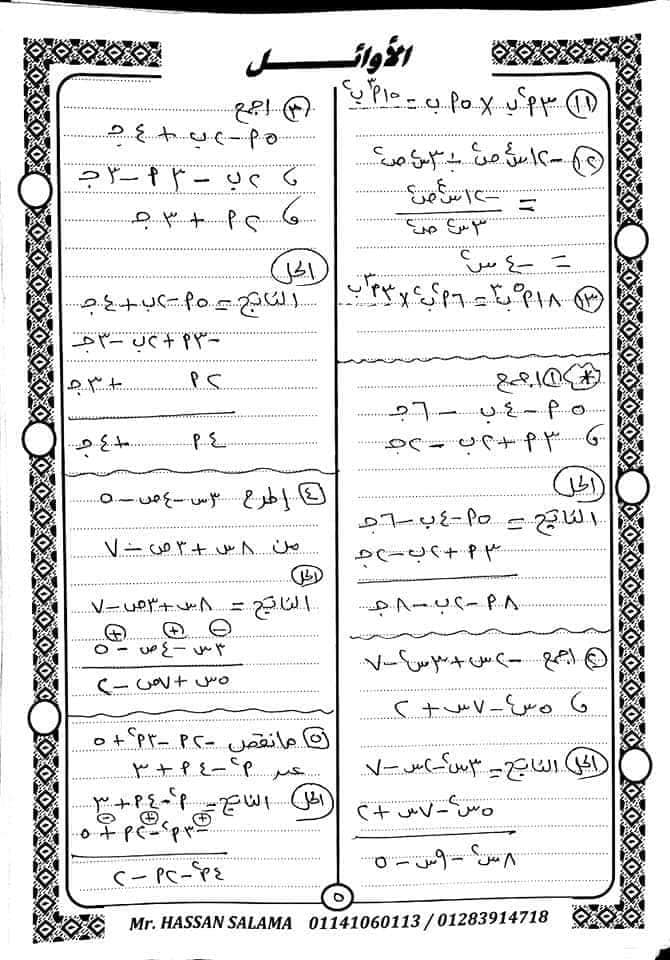 الأوائل
(١١) ٣أ²ب × ٥أب = ١٥أ³ب²
(١٢) -١٢س⁴ص² ÷ ٣س²ص²
= -١٢س⁴ص² / ٣س²ص²
= -٤س²
(١٣) ١٨أ⁵ب³ = ٦أ²ب² × ٣أ³ب
* (١) اجمع
٥أ - ٤ب - ٦جـ
، ٣أ + ٢ب - ٢جـ
الحل
الناتج = ٥أ - ٤ب - ٦جـ
٣أ + ٢ب - ٢جـ
٨أ - ٢ب - ٨جـ
(٢) اجمع -٢س + ٣س² - ٧
، ٥س² - ٧س + ٢
الحل الناتج = ٣س² - ٢س - ٧
٥س² - ٧س + ٢
٨س² - ٩س - ٥
(٣) اجمع
٥أ - ٢ب + ٤جـ
، ٢ب - ٣أ - ٣جـ
، ٢أ + ٣جـ
الحل
الناتج = ٥أ - ٢ب + ٤جـ
-٣أ + ٢ب - ٣جـ
٢أ + ٣جـ
٤أ + ٤جـ
(٤) إطرح ٣س - ٤ص - ٥
من ٨س + ٣ص - ٧
الحل
الناتج = ٨س + ٣ص - ٧
⊖ ⊕ ⊕
٣س - ٤ص - ٥
٥س + ٧ص - ٢
(٥) مانقص -٢أ - ٣أ² + ٥
عن أ² - ٤أ + ٣
الحل الناتج = أ² - ٤أ + ٣
⊕ ⊕ ⊖
-٣أ² - ٢أ + ٥
٤أ² - ٢أ - ٢
٥
Mr. HASSAN SALAMA 01141060113 / 01283914718